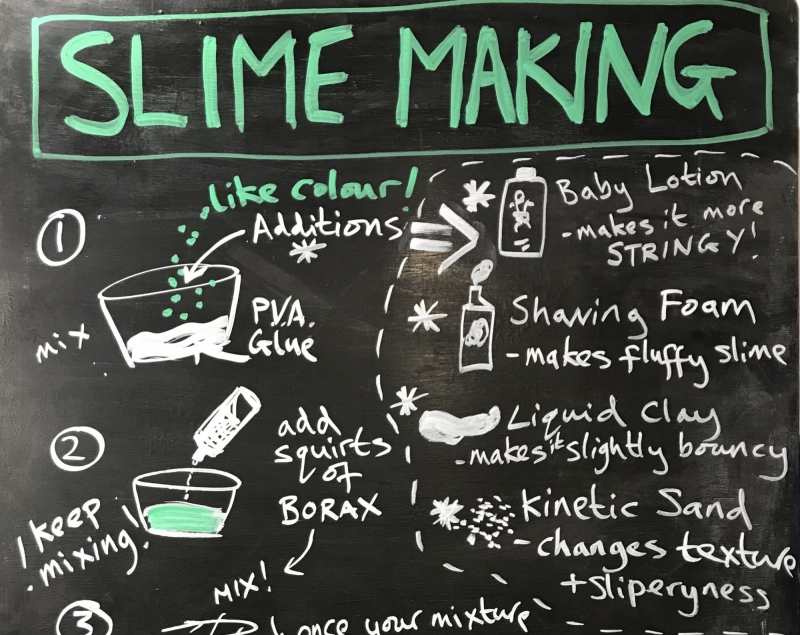 SLIME MAKING
1
like colour!
Additions
*
mix
P.V.A.
Glue
* Baby Lotion
-makes it more
STRINGY!
* Shaving Foam
-makes fluffy slime
* Liquid Clay
-makes it slightly bouncy
* Kinetic Sand
-changes texture
+sliperyness
2
add
squirts
of
BORAX
! keep
mixing!
MIX!
3
once your mixture